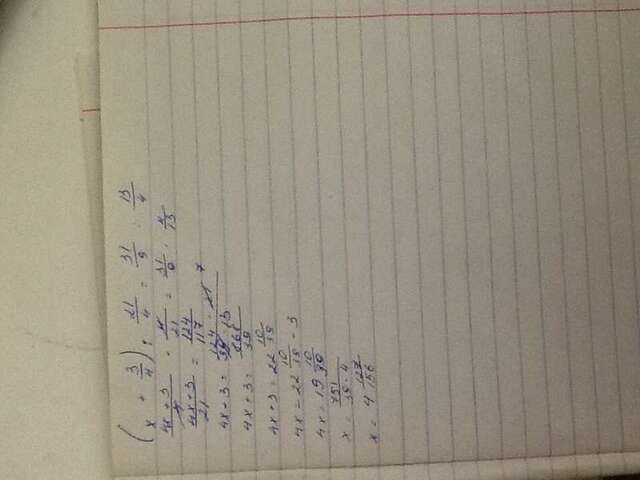 (x + 3/4) : 21/4 = 31/9 : 13/4
4x + 3/4 · 4/21 = 31/9 · 4/13
4x + 3/21 = 124/117
4x + 3 = 124 · 21 7/39 · 13
4x + 3 = 868/39
4x + 3 = 22 10/39
4x = 22 10/39 - 3
4x = 19 10/39
x = 751/39 · 4
x = 4 127/156